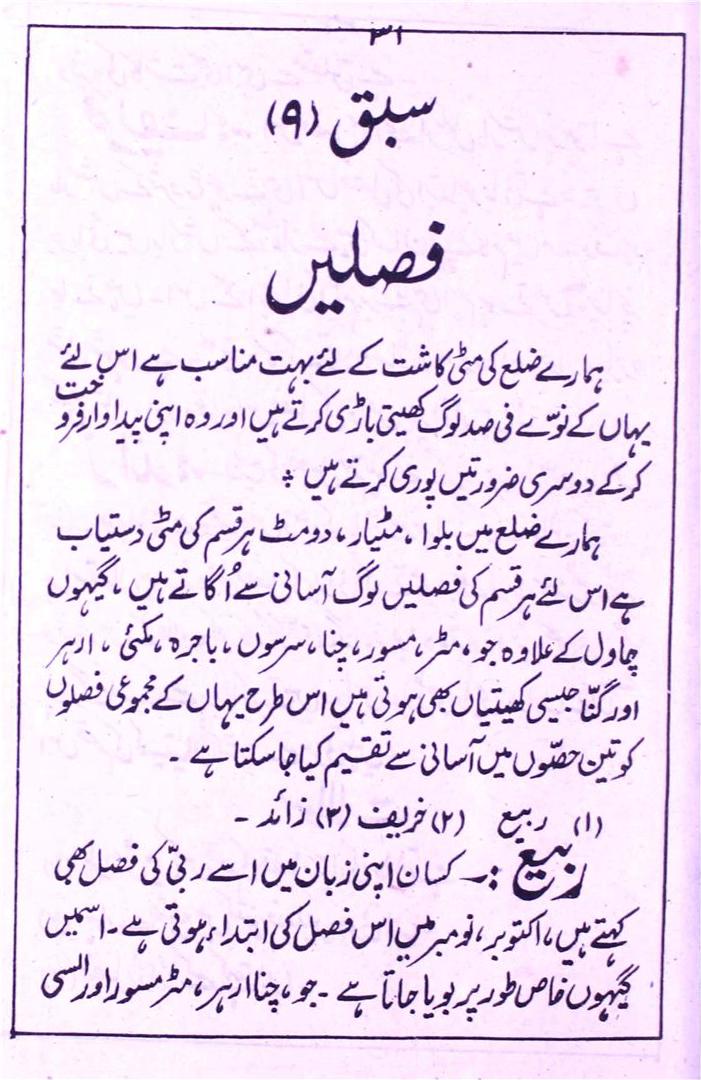 ۳۱
سبق (۹)
فصلیں
ہمارے ضلع کی مٹی کاشت کے لئے بہت مناسب ہے اس لئے
یہاں کے نوّے فی صد لوگ کھیتی باڑی کرتے ہیں اور وہ اپنی پیداوار فروخت
کرکے دوسری ضرورتیں پوری کرتے ہیں ؞
ہمارے ضلع میں بلوا، مٹیار، دومٹ ہر قسم کی مٹی دستیاب
ہے اس لئے ہر قسم کی فصلیں لوگ آسانی سے اُگاتے ہیں، گیہوں
چاول کے علاوہ جو، مٹر، مسور، چنا، سرسوں، باجرہ، مکئی، ارہر
اور گنّا جیسی کھیتیاں بھی ہوتی ہیں اس طرح یہاں کے مجموعی فصلوں
کو تین حصّوں میں آسانی سے تقسیم کیا جاسکتا ہے ۔
(۱) ربیع (۲) خریف (۳) زائد ۔
ربیع :۔ کسان اپنی زبان میں اسے ربیّ کی فصل بھی
کہتے ہیں، اکتوبر، نومبر میں اس فصل کی ابتداء ہوتی ہے ۔ اسمیں
گیہوں خاص طور پر بویا جاتا ہے ۔ جو، چنا ارہر، مٹر مسور اور السی